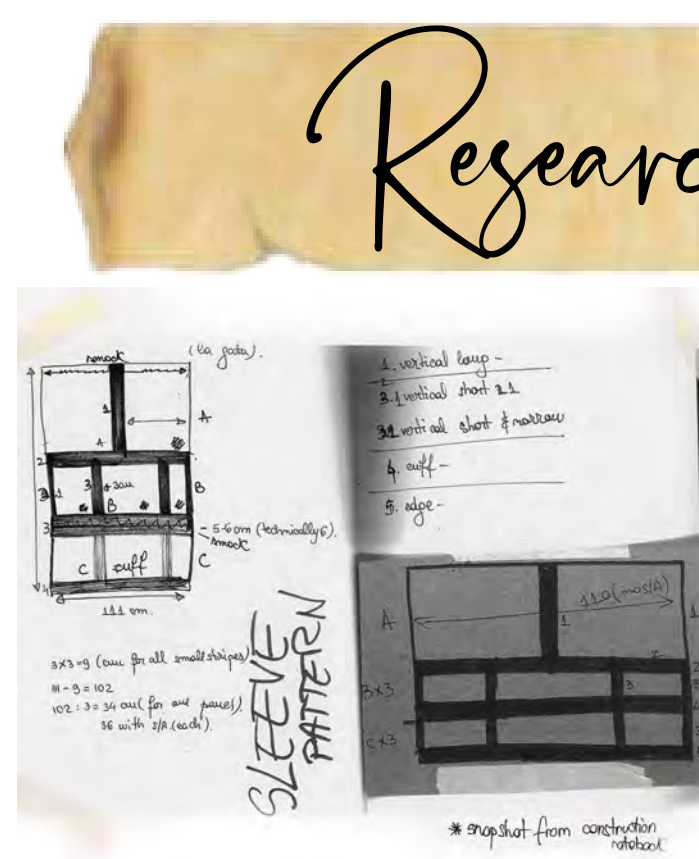 Researc
smock
(la gata).
1
A
A
2
3
3cm
B
B
3
- 5-6 cm (technically 6).
smock
C
cuff
C
4
111 cm.
3x3=9 (cm for all small stripes)
111-9=102
102:3=34 cm (for one panel).
36 with S/A (each).
SLEEVE
PATTERN
1. vertical long -
3.1 vertical short
vertical short & narrow
4. cuff -
5. edge -
A
110 (no S/A)
1
2
3x3
3
Cx3
* snapshot from construction
notebook